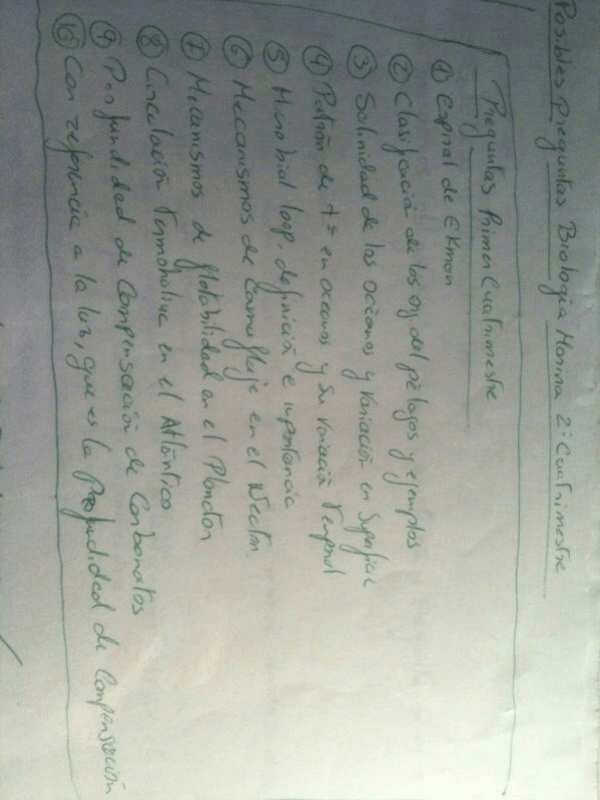 Posibles Preguntas Biología Marina 2º Cuatrimestre
Preguntas Primer Cuatrimestre
① Espiral de Ekman
② Clasificación de los org del pélagos y ejemplos
③ Salinidad de los océanos y variación en superficie
④ Patrón de tª en océanos y su variación temporal
⑤ Microbial loop. definición e importancia
⑥ Mecanismos de camuflaje en el Necton.
⑦ Mecanismos de flotabilidad en el Plancton
⑧ Circulación Termohalina en el Atlántico
⑨ Profundidad de Compensación de Carbonatos
⑩ Con referencia a la luz, que es la Profundidad de Compensación